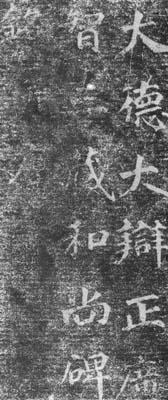 大德大辯正廣
智三藏和尚碑
銘